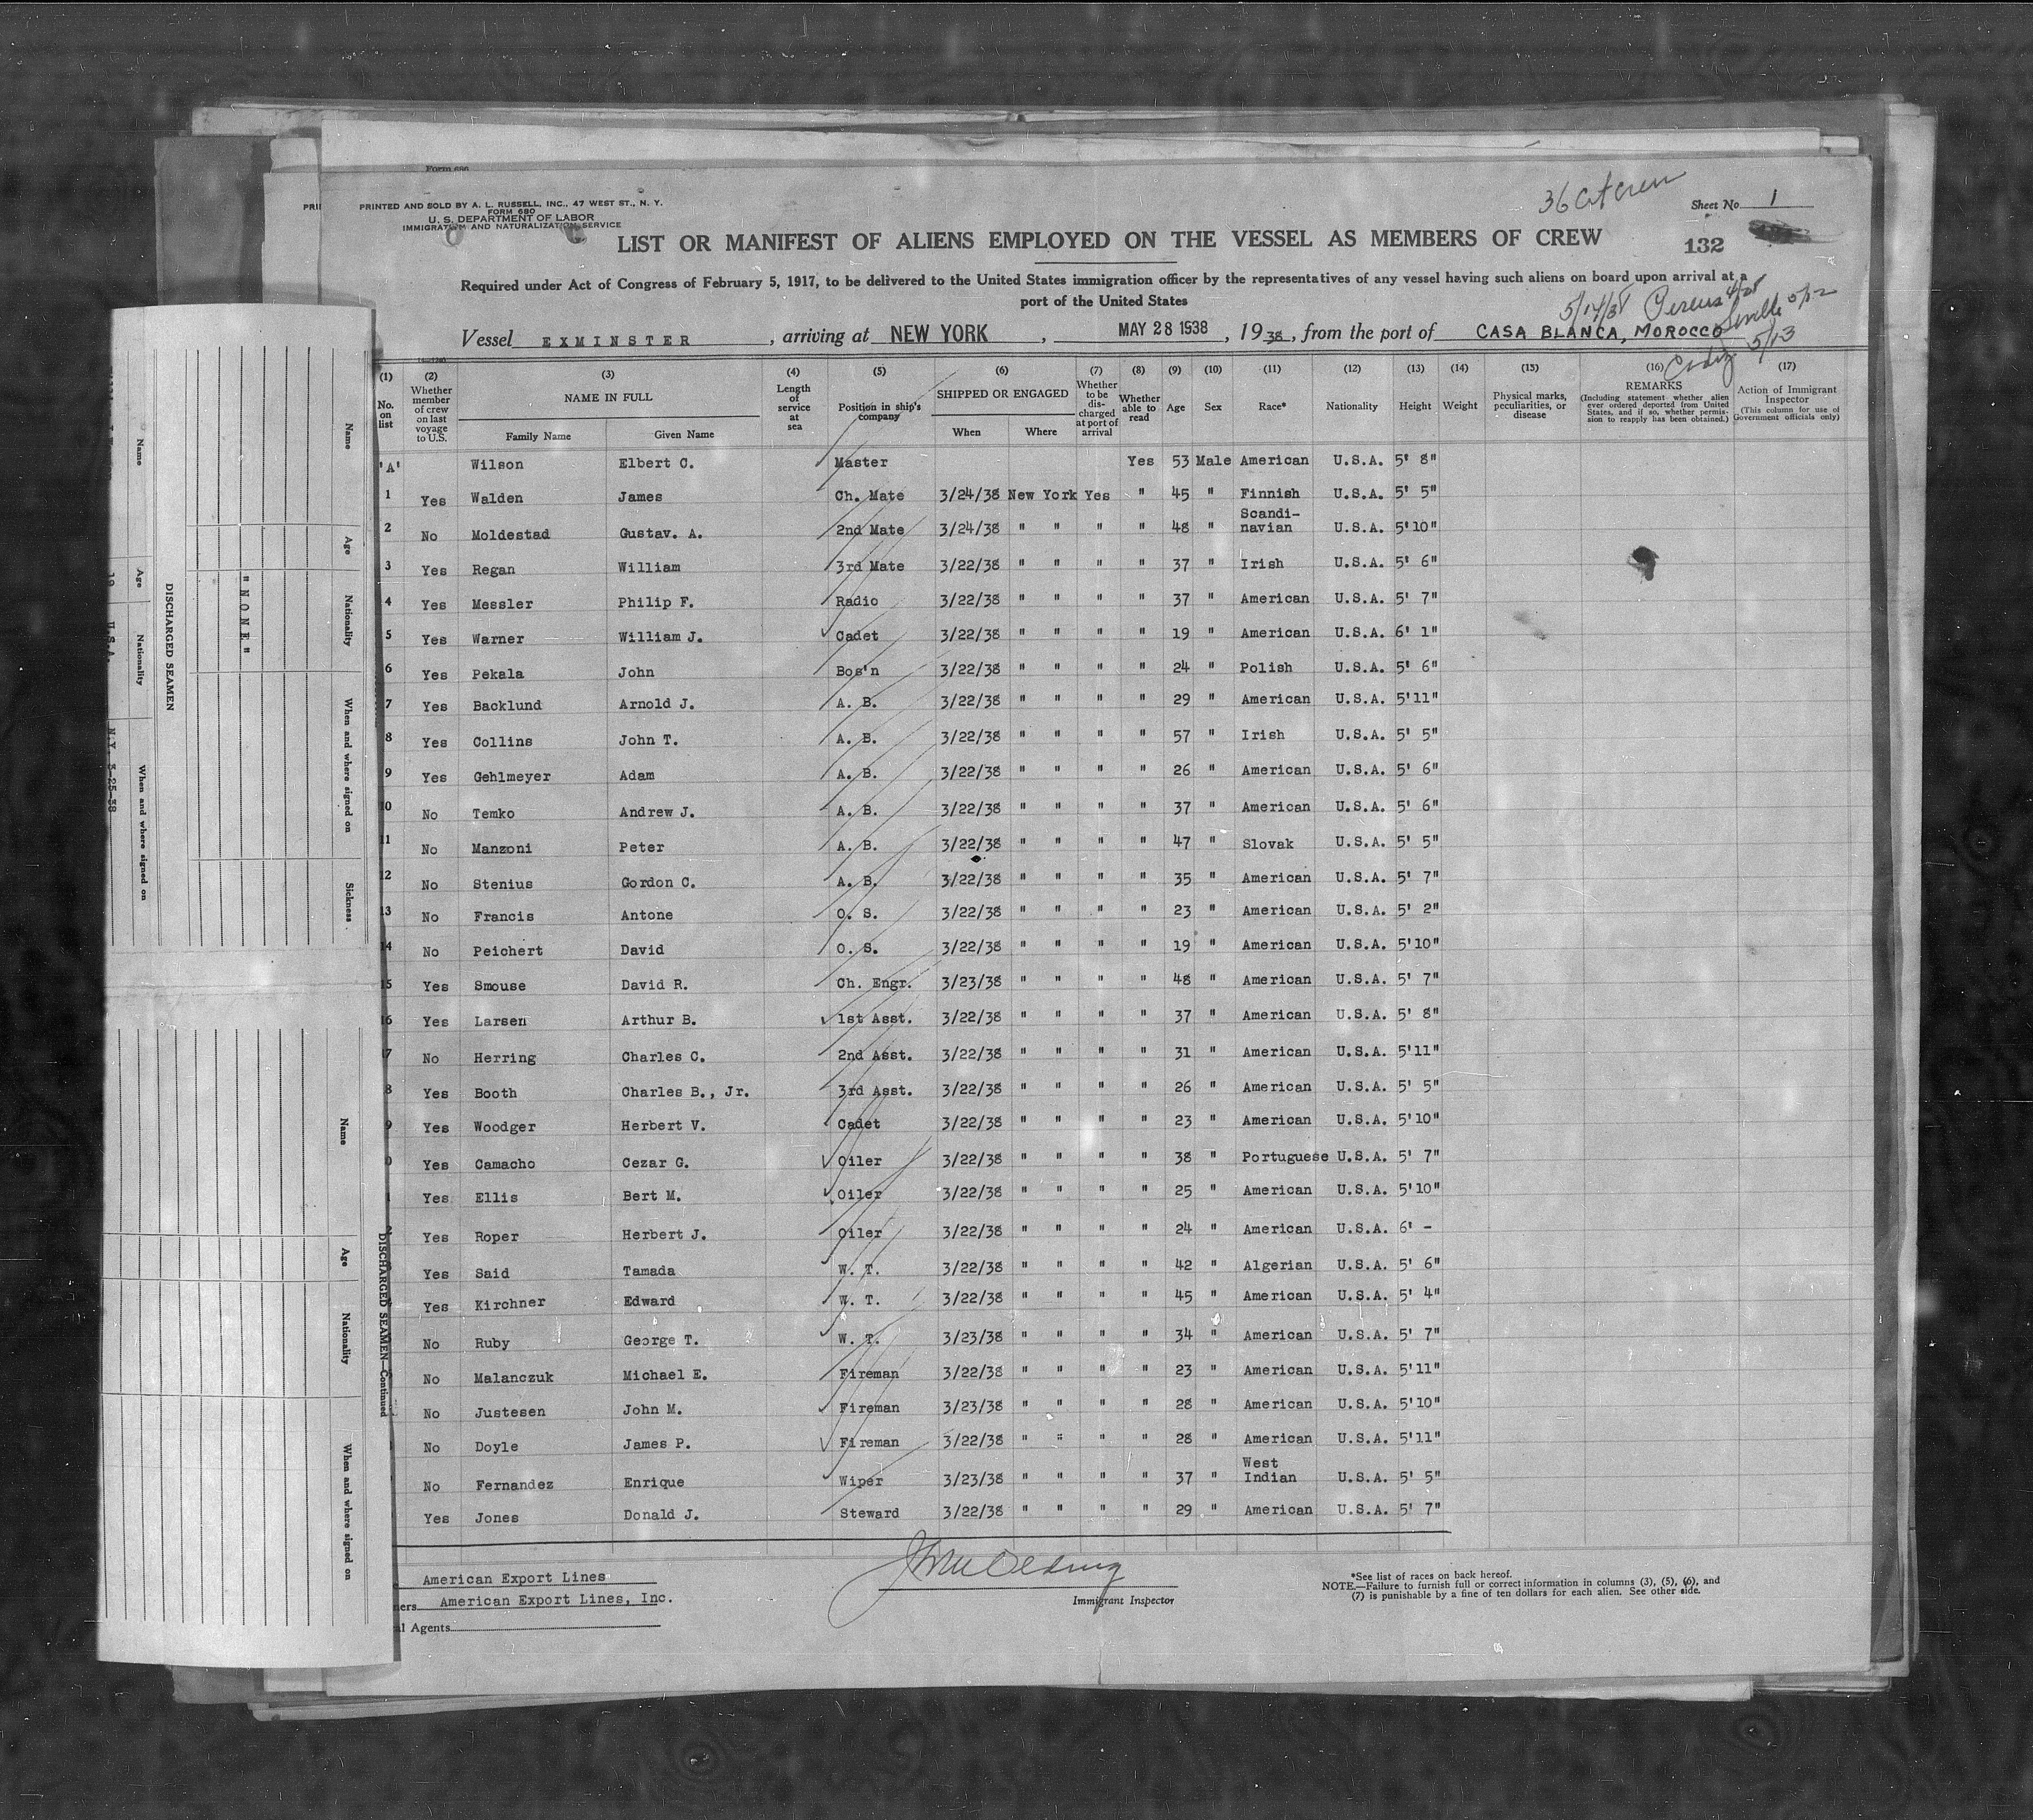 Form 686
36 Cit crew
PRINTED AND SOLD BY A. L. RUSSELL, INC., 47 WEST ST., N. Y.
FORM 680
U. S. DEPARTMENT OF LABOR
IMMIGRATION AND NATURALIZATION SERVICE
Sheet No 1
LIST OR MANIFEST OF ALIENS EMPLOYED ON THE VESSEL AS MEMBERS OF CREW
132
Required under Act of Congress of February 5, 1917, to be delivered to the United States immigration officer by the representatives of any vessel having such aliens on board upon arrival at a
port of the United States
5/14/38
Seville 5/12
Cadiz 5/13
Vessel EXMINSTER, arriving at NEW YORK, MAY 28 1938, 1938, from the port of CASA BLANCA, MOROCCO
(1) No. on list
(2) Whether member of crew on last voyage to U.S.
(3) NAME IN FULL Family Name Given Name
(4) Length of service at sea
(5) Position in ship's company
(6) SHIPPED OR ENGAGED When Where
(7) Whether to be discharged at port of arrival
(8) Whether able to read
(9) Age
(10) Sex
(11) Race*
(12) Nationality
(13) Height
(14) Weight
(15) Physical marks, peculiarities, or disease
(16) REMARKS (Including statement whether alien ever ordered deported from United States, and if so, whether permission to reapply has been obtained.)
(17) Action of Immigrant Inspector (This column for use of Government officials only)
'A' Wilson Elbert C. Master Yes 53 Male American U.S.A. 5' 8"
1 Yes Walden James Ch. Mate 3/24/38 New York Yes " 45 " Finnish U.S.A. 5' 5"
2 No Moldestad Gustav. A. 2nd Mate 3/24/38 " " " " 48 " Scandi-navian U.S.A. 5'10"
3 Yes Regan William 3rd Mate 3/22/38 " " " " 37 " Irish U.S.A. 5' 6"
4 Yes Messler Philip F. Radio 3/22/38 " " " " 37 " American U.S.A. 5' 7"
5 Yes Warner William J. Cadet 3/22/38 " " " " 19 " American U.S.A. 6' 1"
6 Yes Pekala John Bos'n 3/22/38 " " " " 24 " Polish U.S.A. 5' 6"
7 Yes Backlund Arnold J. A. B. 3/22/38 " " " " 29 " American U.S.A. 5'11"
8 Yes Collins John T. A. B. 3/22/38 " " " " 57 " Irish U.S.A. 5' 5"
9 Yes Gehlmeyer Adam A. B. 3/22/38 " " " " 26 " American U.S.A. 5' 6"
10 No Temko Andrew J. A. B. 3/22/38 " " " " 37 " American U.S.A. 5' 6"
11 No Manzoni Peter A. B. 3/22/38 " " " " 47 " Slovak U.S.A. 5' 5"
12 No Stenius Gordon C. A. B. 3/22/38 " " " " 35 " American U.S.A. 5' 7"
13 No Francis Antone O. S. 3/22/38 " " " " 23 " American U.S.A. 5' 2"
14 No Peichert David O. S. 3/22/38 " " " " 19 " American U.S.A. 5'10"
15 Yes Smouse David R. Ch. Engr. 3/23/38 " " " " 48 " American U.S.A. 5' 7"
16 Yes Larsen Arthur B. 1st Asst. 3/22/38 " " " " 37 " American U.S.A. 5' 8"
7 No Herring Charles C. 2nd Asst. 3/22/38 " " " " 31 " American U.S.A. 5'11"
8 Yes Booth Charles B., Jr. 3rd Asst. 3/22/38 " " " " 26 " American U.S.A. 5' 5"
9 Yes Woodger Herbert V. Cadet 3/22/38 " " " " 23 " American U.S.A. 5'10"
0 Yes Camacho Cezar G. Oiler 3/22/38 " " " " 38 " Portuguese U.S.A. 5' 7"
1 Yes Ellis Bert M. Oiler 3/22/38 " " " " 25 " American U.S.A. 5'10"
2 Yes Roper Herbert J. Oiler 3/22/38 " " " " 24 " American U.S.A. 6' -
Yes Said Tamada W. T. 3/22/38 " " " " 42 " Algerian U.S.A. 5' 6"
Yes Kirchner Edward W. T. 3/22/38 " " " " 45 " American U.S.A. 5' 4"
No Ruby George T. W. T. 3/23/38 " " " " 34 " American U.S.A. 5' 7"
No Malanczuk Michael E. Fireman 3/22/38 " " " " 23 " American U.S.A. 5'11"
No Justesen John M. Fireman 3/23/38 " " " " 28 " American U.S.A. 5'10"
No Doyle James P. Fireman 3/22/38 " " " " 28 " American U.S.A. 5'11"
No Fernandez Enrique Wiper 3/23/38 " " " " 37 " West Indian U.S.A. 5' 5"
Yes Jones Donald J. Steward 3/22/38 " " " " 29 " American U.S.A. 5' 7"
American Export Lines
ners American Export Lines, Inc.
al Agents
Immigrant Inspector
*See list of races on back hereof.
NOTE.—Failure to furnish full or correct information in columns (3), (5), (6), and
(7) is punishable by a fine of ten dollars for each alien. See other side.
Name Age Nationality When and where signed on Sickness
"NONE"
DISCHARGED SEAMEN
Name Age Nationality When and where signed on
19 U.S.A. N.Y. 3-25-38
Name Age Nationality When and where signed on
DISCHARGED SEAMEN—Continued